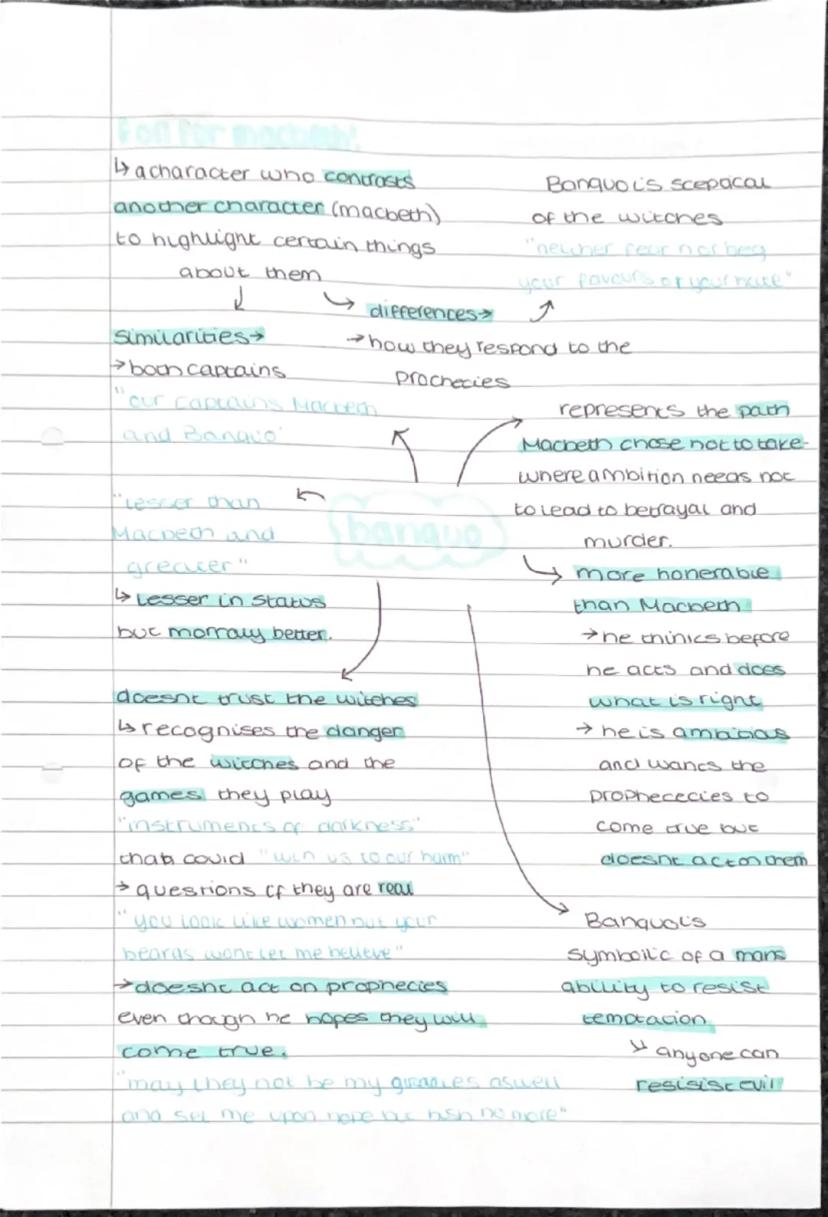 Foil for macbeth!
↳ a character who contrasts
another character (macbeth)
to highlight certain things
about them
similarities→
→ both captains
"our captains Macbeth
and Banquo"
differences→
→ how they respond to the
prophecies
Banquo is scepacal
of the witches
"neither fear nor beg
your favours or your hate"
banquo
"Lesser than
Macbeth and
greater"
↳ Lesser in status
but morraly better.
represents the path
Macbeth chose not to take-
where ambition needs not
to lead to betrayal and
murder.
more honerable
than Macbeth
→ he thinks before
he acts and does
what is right
→ he is ambitious
and wants the
prophececies to
come true but
doesnt act on them
doesnt trust the witches
↳ recognises the danger
of the witches and the
games they play
"instruments of darkness"
that could "win us to our harm"
→ questions if they are real
"you look like women but your
beards wont let me believe"
→ doesnt act on prophecies
even though he hopes they will
come true.
"may they not be my aswell
and set me upon hope but hush no more"
Banquo is
symbolic of a mans
ability to resist
temptation
↳ anyone can
resisist evil